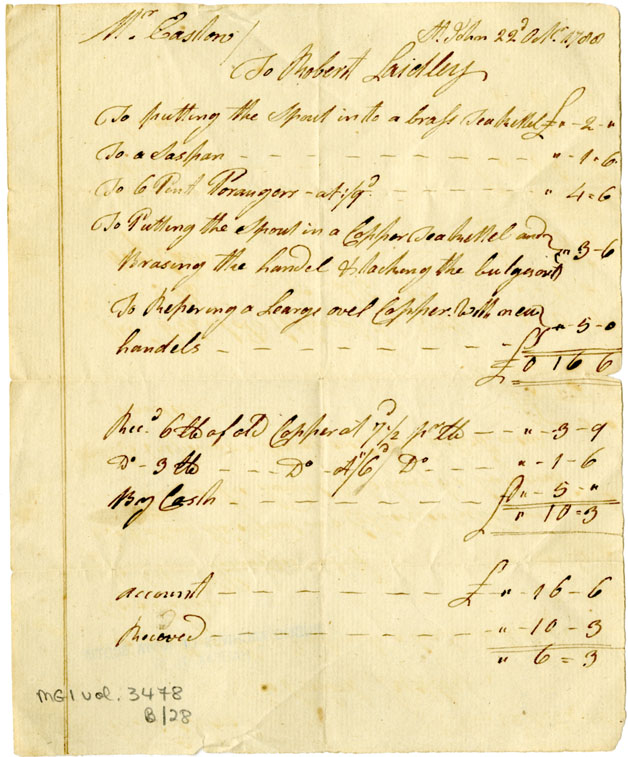 Mr Easlow
St. John 22d Octr. 1788
To Robert Laidley
To putting the Spout in to a brass Teakittel £ " - 2 - "
To a Saspan - - - - " - 1 = 6
To 6 Pint Porangers - at /9d - - - " 4 = 6
To Putting the Spout in a Copper Teakittel and
Brasing the handel & tacking the bulges out " 3 - 6
To Repering a Learge ovel Copper With new
handels - - - - " - 5 - 0
£ 0 16 6
Recd. 6 lb of old Copper at 7d 1/2 pr lb - - " - 3 - 9
Do - 3 lb - - - Do - at /6d Do - - " - 1 - 6
By Cash - - - - " - 5 - "
£ " 10 = 3
account - - - - £ " - 16 - 6
Receved - - - - " - 10 - 3
" 6 = 3
MG1 vol. 3478
B/28